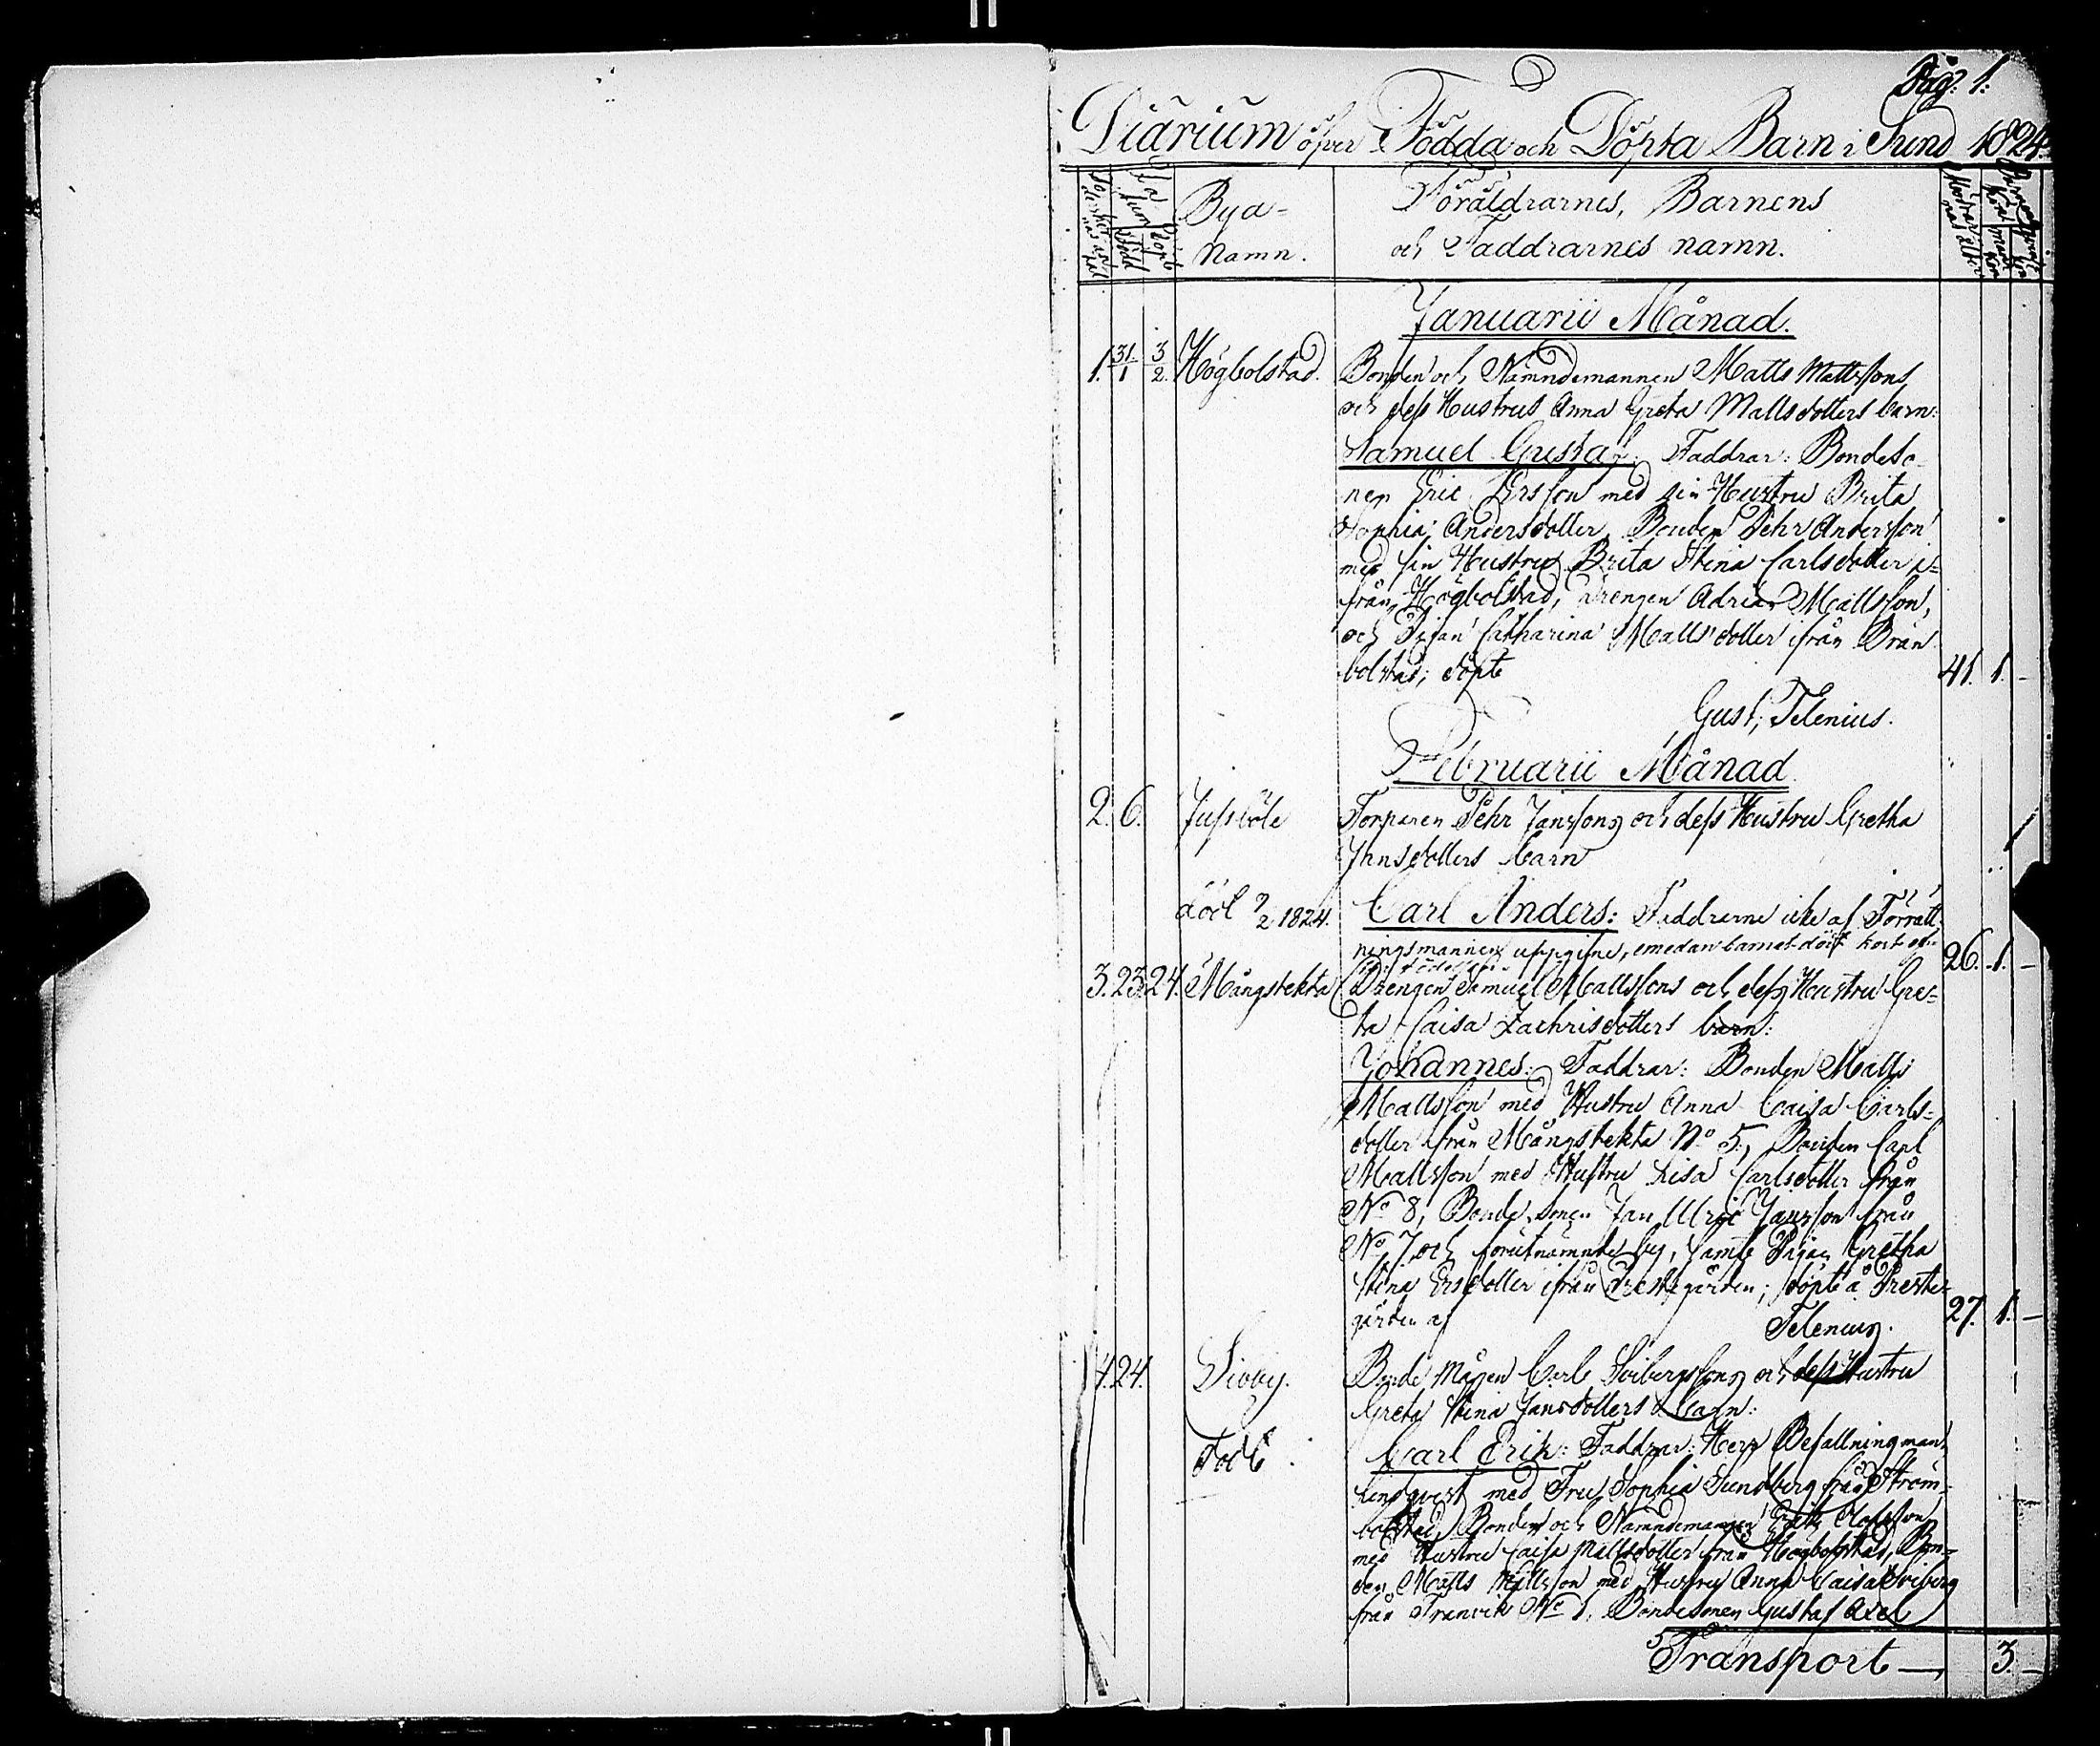 Pag: 1:
Diarium öfver Födda och Döpta Barn i Sund 1824.
Datum Född Döpt
Bya-
Namn.
Föräldrarnes, Barnens
och Faddrarnes namn.
Januarii Månad.
1. 31/1 3/2. Högbolstad. Bonden och Nämndemannen Matts Mattssons
och dess Hustrus Anna Greta Mattsdotters barn:
Samuel Gustaf: Faddrar: Bondeso-
nen Eric Ersson med sin Hustru Brita
Sophia Andersdotter, Bonden Pehr Andersson
med sin Hustru Brita Stina Carlsdotter i-
från Högbolstad, Drengen Adrian Mattsson,
och Pigan Catharina Mattsdotter ifrån Brän-
bolstad; döpte 41. 1. -
Gust. Telenius.
Februarii Månad
2. 6. Jussböle Torparen Pehr Janssons och dess Hustru Gretha
Jansdotters barn
död 9/2 1824. Carl Anders: Faddrarne icke af Förrätt-
ningsmannen uppgifne, emedan barnet dött kort efter 26. 1. -
födelsen
3. 23. 24. Mångstekta Drengen Samuel Mattssons och dess Hustru Gre-
ta Caisa Zachrisdotters barn:
Johannes: Faddrar: Bonden Matts
Mattsson med Hustru Anna Caisa Carls-
dotter från Mångstekta No 5, Bonden Carl
Mattsson med Hustru Lisa Carlsdotter från
No 8, Bonde sonen Jan Ulric Jansson från
No 7 och förutnämnde by, samt Pigan Gretha
Stina Ersdotter ifrån Prestegården; döpte å Preste-
gården af 27. 1. -
Telenius.
4. 24. Sibby. Bonde Mågen Carl Svibergssons och dess Hustru
Greta Stina Jansdotters barn:
död Carl Erik: Faddrar: Herr Befallningsman
Lindqvist med Fru Sophia Sundberg från Ström-
bolstad, Bonden och Nämndemannen Erik Olofsson
med Hustru Caisa Mattsdotter från Högbolstad, Bon-
den Matts Mattsson med Hustru Anna Caisa Sviberg
från Tranvik No 1, Bondesonen Gustaf Axel
Transport — 3. -